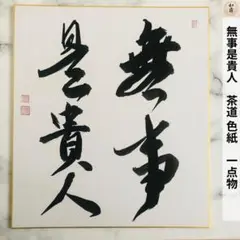 無事
是貴人
無事是貴人　茶道色紙　一点物